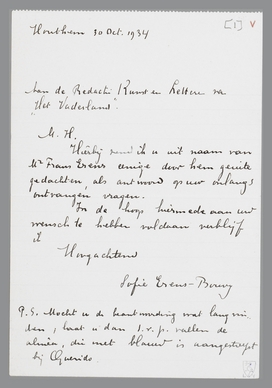 [1] V
Houthem 30 Oct. 1934
Aan de Redactie Kunst en Letteren van
"Het Vaderland".
M. H.
Hierbij zend ik u uit naam van
Mr Frans Erens eenige door hem geuite
gedachten, als antwoord op uw onlangs
ontvangen vragen.
In de hoop hiermede aan uw
wensch te hebben voldaan verblijf
ik
Hoogachtend
Sofie Erens-Bouvy
P.S. Mocht u de beantwoording wat lang vin
den, laat u dan s.v.p. vallen de
alinéa, die met blauw is aangestreept
bij Querido.